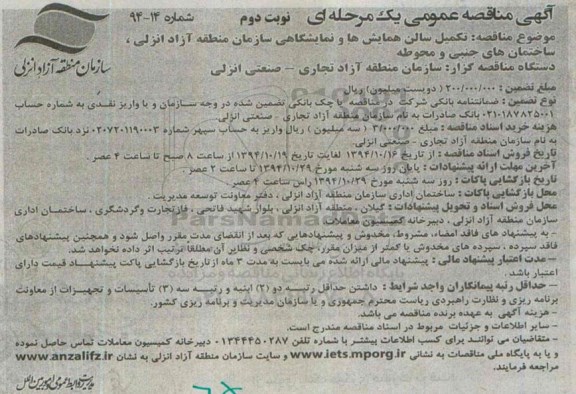 آگهی مناقصه عمومی یک مرحله ای نوبت دوم شماره ۱۴-۹۴
موضوع مناقصه: تکمیل سالن همایش ها و نمایشگاهی سازمان منطقه آزاد انزلی ،
ساختمان های جنبی و محوطه
دستگاه مناقصه گزار: سازمان منطقه آزاد تجاری – صنعتی انزلی
سازمان منطقه آزاد انزلی
مبلغ تضمین : ۲۰۰/۰۰۰/۰۰۰ ( دویست میلیون) ریال
نوع تضمین : ضمانتنامه بانکی شرکت در مناقصه یا چک بانکی تضمین شده در وجه سازمان و یا واریز نقدی به شماره حساب
۰۲۱۰۱۸۷۸۲۵۰۰۱ بانک صادرات به نام سازمان منطقه آزاد تجاری - صنعتی انزلی.
هزینه خرید اسناد مناقصه : مبلغ ۳/۰۰۰/۰۰۰ ( سه میلیون ) ریال واریز به حساب سپهر شماره ۰۲۰۷۲۰۱۱۹۰۰۰۳ نزد بانک صادرات
به نام سازمان منطقه آزاد تجاری - صنعتی انزلی.
تاریخ فروش اسناد مناقصه : از تاریخ ۱۳۹۴/۱۰/۱۶ لغایت تاریخ ۱۳۹۴/۱۰/۱۹ از ساعت ۸ صبح تا ساعت ۴ عصر.
آخرین مهلت ارائه پیشنهادات : پایان روز سه شنبه مورخ ۱۳۹۴/۱۰/۲۹ تا ساعت ۲ عصر.
تاریخ بازگشایی پاکات : روز سه شنبه مورخ ۱۳۹۴/۱۰/۲۹ راس ساعت ۴ عصر.
محل بازگشایی پاکات : ساختمان اداری سازمان منطقه آزاد انزلی ، دفتر معاونت توسعه مدیریت .
محل فروش اسناد و تحویل پیشنهادات : گیلان ، منطقه آزاد انزلی ، بلوار شهید قانجی ، فاز تجارت وگردشگری ، ساختمان اداری
سازمان منطقه آزاد انزلی ، دبیرخانه کمیسیون معاملات
- به پیشنهاد های فاقد امضاء، مشروط، مخدوش و پیشنهادهایی که بعد از انقضای مدت مقرر واصل شود و همچنین پیشنهادهای
فاقد سپرده ، سپرده های مخدوش یا کمتر از میزان مقرر، چک شخصی و نظایر آن مطلقا ترتیب اثر داده نخواهد شد.
– مدت اعتبار پیشنهاد مالی : پیشنهاد مالی ارائه شده می بایست به مدت ۳ ماه از تاریخ بازگشایی پاکت پیشنهاد قیمت دارای
اعتبار باشد .
– حداقل رتبه پیمانکاران واجد شرایط : داشتن حداقل رتبه دو (۲) ابنیه و رتبه سه (۳) تأسیسات و تجهیزات از معاونت
برنامه ریزی و نظارت راهبردی ریاست محترم جمهوری و یا سازمان مدیریت و برنامه ریزی کشور.
- هزینه آگهی به عهده برنده مناقصه می باشد.
- سایر اطلاعات و جزئیات مربوط در اسناد مناقصه مندرج است.
- متقاضیان می توانند برای کسب اطلاعات بیشتر با شماره تلفن ۰۱۳۴۴۴۵۰۲۸۷ دبیرخانه کمیسیون معاملات تماس حاصل نموده
و یا به پایگاه ملی مناقصات به نشانی www.iets.mporg.ir و سایت سازمان منطقه آزاد انزلی به نشان www.anzalifz.ir
مراجعه فرمایند.